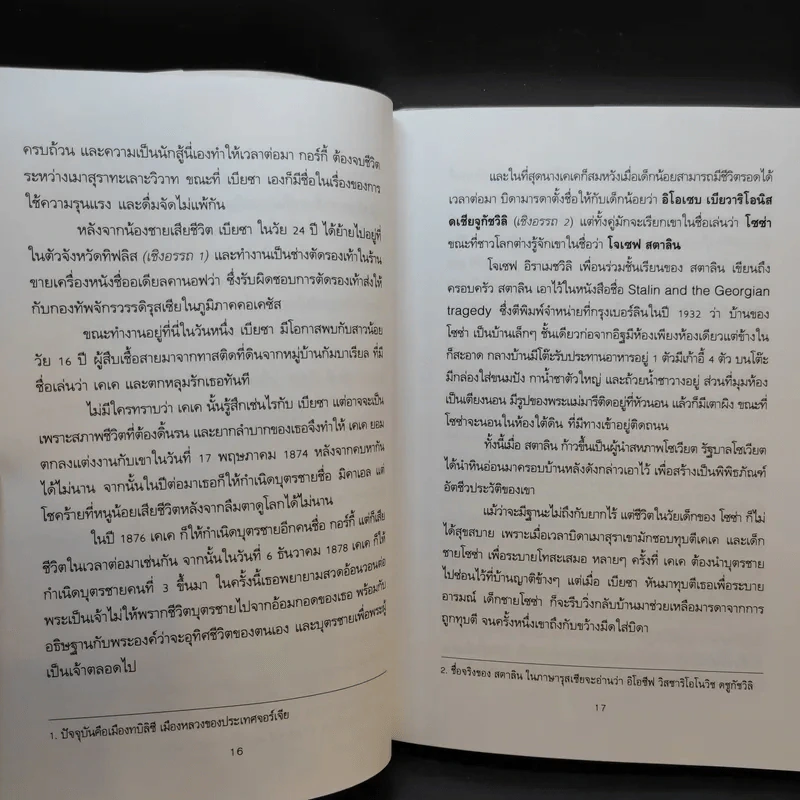 ครบถ้วน และความเป็นนักสู้นี่เองทำให้เวลาต่อมา กอร์กี้ ต้องจบชีวิต
ระหว่างเมาสุราทะเลาะวิวาท ขณะที่ เบียซา เองก็มีชื่อในเรื่องของการ
ใช้ความรุนแรง และดื่มจัดไม่แพ้กัน
หลังจากน้องชายเสียชีวิต เบียซา ในวัย 24 ปี ได้ย้ายไปอยู่ที่
ในตัวจังหวัดทิฟลิส (เชิงอรรถ 1) และทำงานเป็นช่างตัดรองเท้าในร้าน
ขายเครื่องหนังชื่ออเดียลคานอฟวา ซึ่งรับผิดชอบการตัดรองเท้าส่งให้
กับกองทัพจักรวรรดิรุสเซียในภูมิภาคคอเคซัส
ขณะทำงานอยู่ที่นี่ในวันหนึ่ง เบียซา มีโอกาสพบกับสาวน้อย
วัย 16 ปี ผู้สืบเชื้อสายมาจากทาสติดที่ดินจากหมู่บ้านกัมบาเรียล ที่มี
ชื่อเล่นว่า เคเค และตกหลุมรักเธอทันที
ไม่มีใครทราบว่า เคเค นั้นรู้สึกเช่นไรกับ เบียซา แต่อาจจะเป็น
เพราะสภาพชีวิตที่ต้องดิ้นรน และยากลำบากของเธอจึงทำให้ เคเค ยอม
ตกลงแต่งงานกับเขาในวันที่ 17 พฤษภาคม 1874 หลังจากคบหากัน
ได้ไม่นาน จากนั้นในปีต่อมาเธอก็ให้กำเนิดบุตรชายชื่อ มิคาเอล แต่
โชคร้ายที่หนูน้อยเสียชีวิตหลังจากลืมตาดูโลกได้ไม่นาน
ในปี 1876 เคเค ก็ให้กำเนิดบุตรชายอีกคนชื่อ กอร์กี้ แต่ก็เสีย
ชีวิตในเวลาต่อมาเช่นกัน จากนั้นในวันที่ 6 ธันวาคม 1878 เคเค ก็ให้
กำเนิดบุตรชายคนที่ 3 ขึ้นมา ในครั้งนี้เธอพยายามสวดอ้อนวอนต่อ
พระเป็นเจ้าไม่ให้พรากชีวิตบุตรชายไปจากอ้อมกอดของเธอ พร้อมกับ
อธิษฐานกับพระองค์ว่าจะอุทิศชีวิตของตนเอง และบุตรชายเพื่อพระผู้
เป็นเจ้าตลอดไป
1. ปัจจุบันคือเมืองทบิลิซี เมืองหลวงของประเทศจอร์เจีย
16
และในที่สุดนางเคเคก็สมหวังเมื่อเด็กน้อยสามารถมีชีวิตรอดได้
เวลาต่อมา บิดามารดาตั้งชื่อให้กับเด็กน้อยว่า อิโอเซบ เบียวาริโอนิส
ดเซียจูกัชวิลิ (เชิงอรรถ 2) แต่ทั้งคู่มักจะเรียกเขาในชื่อเล่นว่า โซซ่า
ขณะที่ชาวโลกต่างรู้จักเขาในชื่อว่า โจเซฟ สตาลิน
โจเซฟ อิราเมชวิลี เพื่อนร่วมชั้นเรียนของ สตาลิน เขียนถึง
ครอบครัว สตาลิน เอาไว้ในหนังสือชื่อ Stalin and the Georgian
tragedy ซึ่งตีพิมพ์จำหน่ายที่กรุงเบอร์ลินในปี 1932 ว่า บ้านของ
โซซ่า เป็นบ้านเล็กๆ ชั้นเดียวก่อจากอิฐมีห้องเพียงห้องเดียวแต่ข้างใน
ก็สะอาด กลางบ้านมีโต๊ะรับประทานอาหารอยู่ 1 ตัวมีเก้าอี้ 4 ตัว บนโต๊ะ
มีกล่องใส่ขนมปัง กาน้ำชาตัวใหญ่ และถ้วยน้ำชาวางอยู่ ส่วนที่มุมห้อง
เป็นเตียงนอน มีรูปของพระแม่มารีติดอยู่ที่หัวนอน แล้วก็มีเตาผิง ขณะที่
โซซ่าจะนอนในห้องใต้ดิน ที่มีทางเข้าอยู่ติดถนน
ทั้งนี้เมื่อ สตาลิน ก้าวขึ้นเป็นผู้นำสหภาพโซเวียต รัฐบาลโซเวียต
ได้นำหินอ่อนมาครอบบ้านหลังดังกล่าวเอาไว้ เพื่อสร้างเป็นพิพิธภัณฑ์
อัตชีวประวัติของเขา
แม้ว่าจะมีฐานะไม่ถึงกับยากไร้ แต่ชีวิตในวัยเด็กของ โซซ่า ก็ไม่
ได้สุขสบาย เพราะเมื่อเวลาบิดาเมาสุราเขามักชอบทุบตีเคเค และเด็ก
ชายโซซ่า เพื่อระบายโทสะเสมอ หลายๆ ครั้งที่ เคเค ต้องนำบุตรชาย
ไปซ่อนไว้ที่บ้านญาติข้างๆ แต่เมื่อ เบียซา หันมาทุบตีเธอเพื่อระบาย
อารมณ์ เด็กชายโซซ่า ก็จะรีบวิ่งกลับบ้านมาช่วยเหลือมารดาจากการ
ถูกทุบตี จนครั้งหนึ่งเขาถึงกับขว้างมีดใส่บิดา
2. ชื่อจริงของ สตาลิน ในภาษารุสเซียจะอ่านว่า อิโอซิฟ วิสซาริโอโนวิช ดซูกัชวิลิ
17